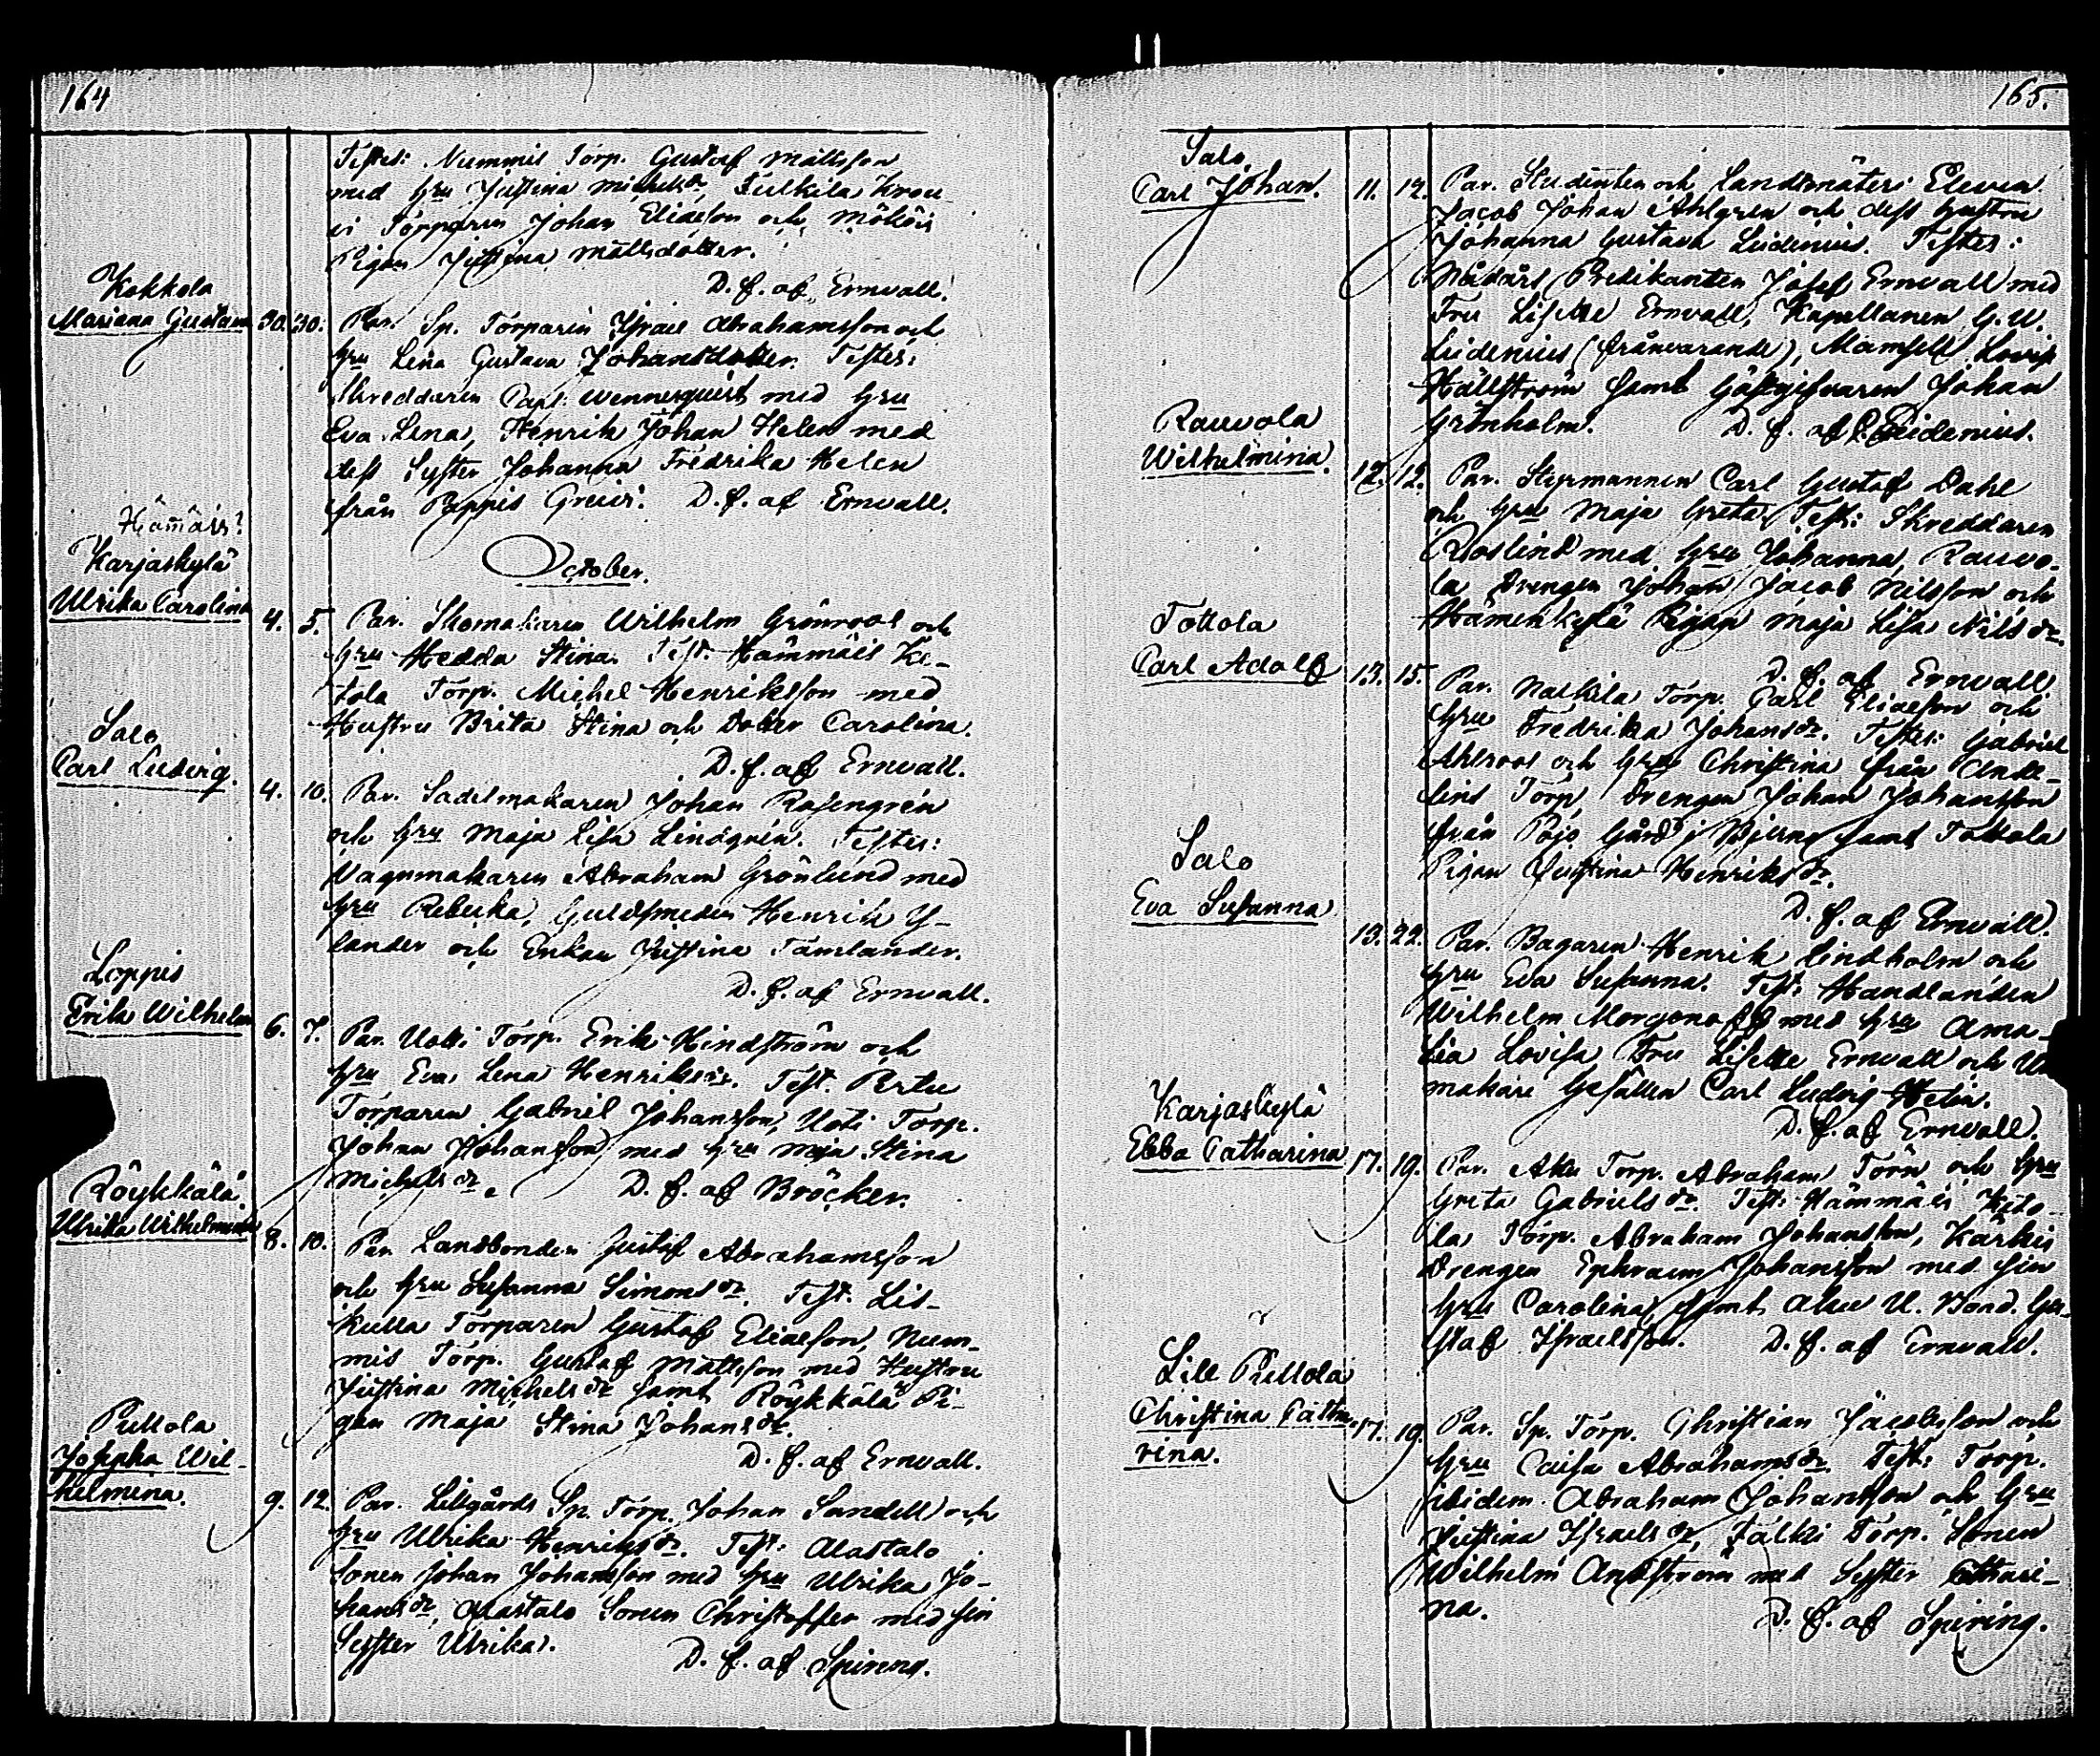 164
Testes: Nummis Torp. Gustaf Mattsson
med hru Justina Michelsdr, Tulkila Krou-
vi Torparen Johan Eliaeson och Mökön
Pigan Justina Mattsdotter.
D. f. af Ernvall.
Kokkola
Mariana Gustava 30. 30. Par. Sp. Torparen Israel Abrahamsson och
hru Lena Gustava Johansdotter. Testes:
Skreddaren Carl Wennerquist med hru
Eva Lena, Henrik Johan Helen med
dess Syster Johanna Fredrika Helen
från Pappis Greivi. D. f. af Ernvall.
October.
Hämäis?
Karjaskylä
Ulrika Carolina 4. 5. Par. Skomakaren Wilhelm Grönroos och
hru Hedda Stina. Test. Hämmäis Ke-
tola Torp. Michel Henriksson med
Hustru Brita Stina och Dotter Carolina.
D. f. af Ernvall.
Salo
Carl Ludvig. 4. 10. Par. Sadelmakaren Johan Rosengrén
och hru Maja Lisa Lindqvin. Testes:
Vagnmakaren Abraham Grönlund med
hru Rebecka, Guldsmeden Henrik Y-
lander och Enkan Justina Tamlander.
D. f. af Ernvall.
Loppis
Erik Wilhelm 6. 7. Par. Uotti Torp. Erik Hindström och
hru Eva Lena Henriksdr. Test. Pertu
Torparen Gabriel Johansson, Uoti Torp.
Johan Johansson med hru Maja Stina
Michelsdr. D. f. af Bröcker.
Röykkälä
Ulrika Wilhelmina 8. 10. Par. Landbonden Gustaf Abrahamsson
och hru Susanna Simonsdr. Test. Lis-
kulla Torparen Gustaf Eliaeson, Num-
mis Torp. Gustaf Mattsson med Hustru
Justina Michelsdr samt Röykkälä Pi-
gan Maja Stina Johansdr.
D. f. af Ernvall.
Pullola
Josepha Wil-
helmina. 9. 12. Par. Lillgårds Sp. Torp. Johan Sandell och
hru Ulrika Henriksdr. Test. Alastalo
Sonen Johan Johansson med hru Ulrika Jo-
hansdr, Alastalo Sonen Christoffer med sin
Syster Ulrika. D. f. af Spiring.
165.
Salo
Carl Johan. 11. 12. Par. Studenten och Landtmäteri Eleven
Jacob Johan Ahlgren och dess hustru
Johanna Gustava Lidenius. Testes:
Nådårs Predikanten Josef Ernvall med
Fru Lisette Ernvall, Kapellanen G. W.
Lidenius (frånvarande), Mamsell Lovisa
Hällström samt Gästgifvaren Johan
Grönholm. D. f. af G. Lidenius.
Rauvola
Wilhelmina. 12. 12. Par. Styrmannen Carl Gustaf Dahl
och hru Maja Greta. Test: Skreddaren
Roslind med hru Johanna, Rauvo-
la Drengen Johan Jacob Nilsson och
Hämenkylä Pigan Maja Lisa Nilsdr.
D. f. af Ernvall
Tottola
Carl Adolf 13. 15. Par. Naskila Torp. Carl Eliaeson och
hru Fredrika Johansdr. Testes: Gabriel
Ahlroos och hru Christina från Ande-
lins Torp, Drengen Johan Johansson
från Pojo Gård i Bjerno samt Tottola
Pigan Justina Henriksdr.
D. f. af Ernvall.
Salo
Eva Susanna 13. 22. Par. Bagaren Henrik Lindholm och
hru Eva Susanna. Test: Handlanden
Wilhelm Morgonoff med hru Ama-
lia Lovisa Fru Lisette Ernvall och U
makare Gesällen Carl Ludvig Helin.
D. f. af Ernvall.
Karjaskylä
Ebba Catharina 17. 19. Par. Aku Torp. Abraham Törn och hru
Greta Gabrielsdr. Test. Hämmäis Keto-
la Torp. Abraham Johansson, Kärkis
Drengen Ephraim Johansson med sin
hru Carolina, samt Aku U. Bond. Gu-
staf Israelsson. D. f. af Ernvall.
Lill Pullola
Christina Catha-
rina. 17. 19. Par. Sp. Torp. Christian Jacobsson och
hru Caisa Abrahamsdr. Test: Torp.
ibidem Abraham Johansson och hru
Justina Israelsdr, Tälki Torp. Sonen
Wilhelm Andström med Syster Cathari-
na. D. f. af Spiring.